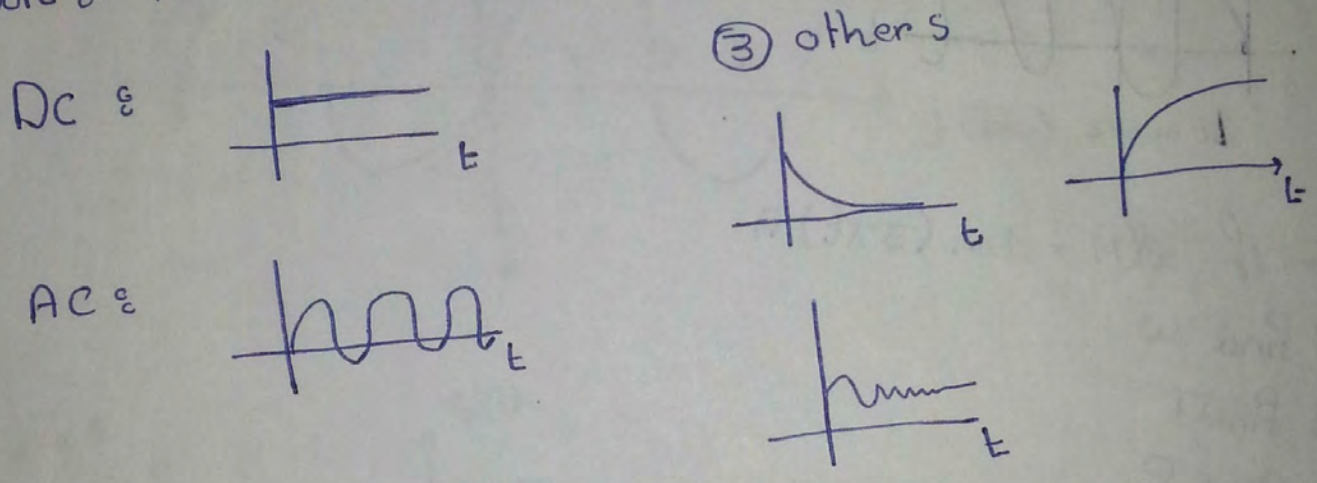 DC :
t
AC :
t
③ others
t
t
t